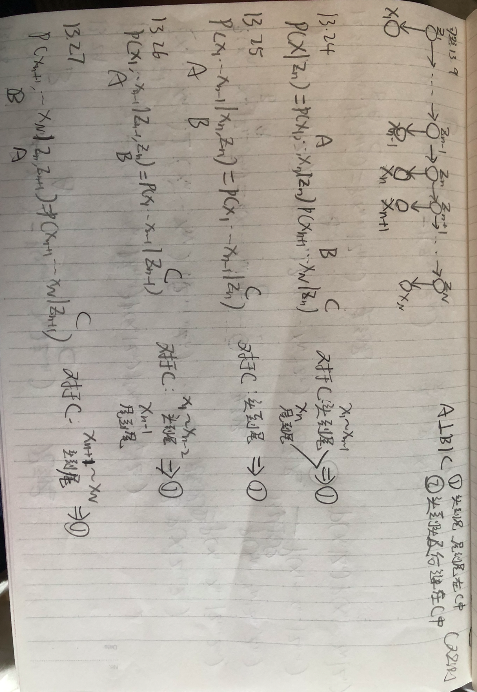 习题 13.9
Z1 Zn-1 Zn Zn+1 ZN
X1 Xn-1 Xn Xn+1 XN
A⊥B|C ① 头到尾, 尾到尾在C中
13.24
P(X|Zn)=P(X1,…Xn|Zn)P(Xn+1…XN|Zn)
A B C
对于C: 头到尾 ⇒①
X1~Xn-1
Xn 尾到尾
13.25
P(X1…Xn-1|Xn,Zn)=P(X1…Xn-1|Zn)
A B C
对于C: 头到尾 ⇒①
13.26
P(X1…Xn-1|Zn-1,Zn)=P(X1…Xn-1|Zn-1)
A B C
对于C: X1~Xn-2 头到尾 ⇒①
Xn-1 尾到尾
13.27
P(Xn+1…XN|Zn,Zn+1)=P(Xn+1…XN|Zn+1)
B A C
对于C: Xn+1~XN 头到尾 ⇒①